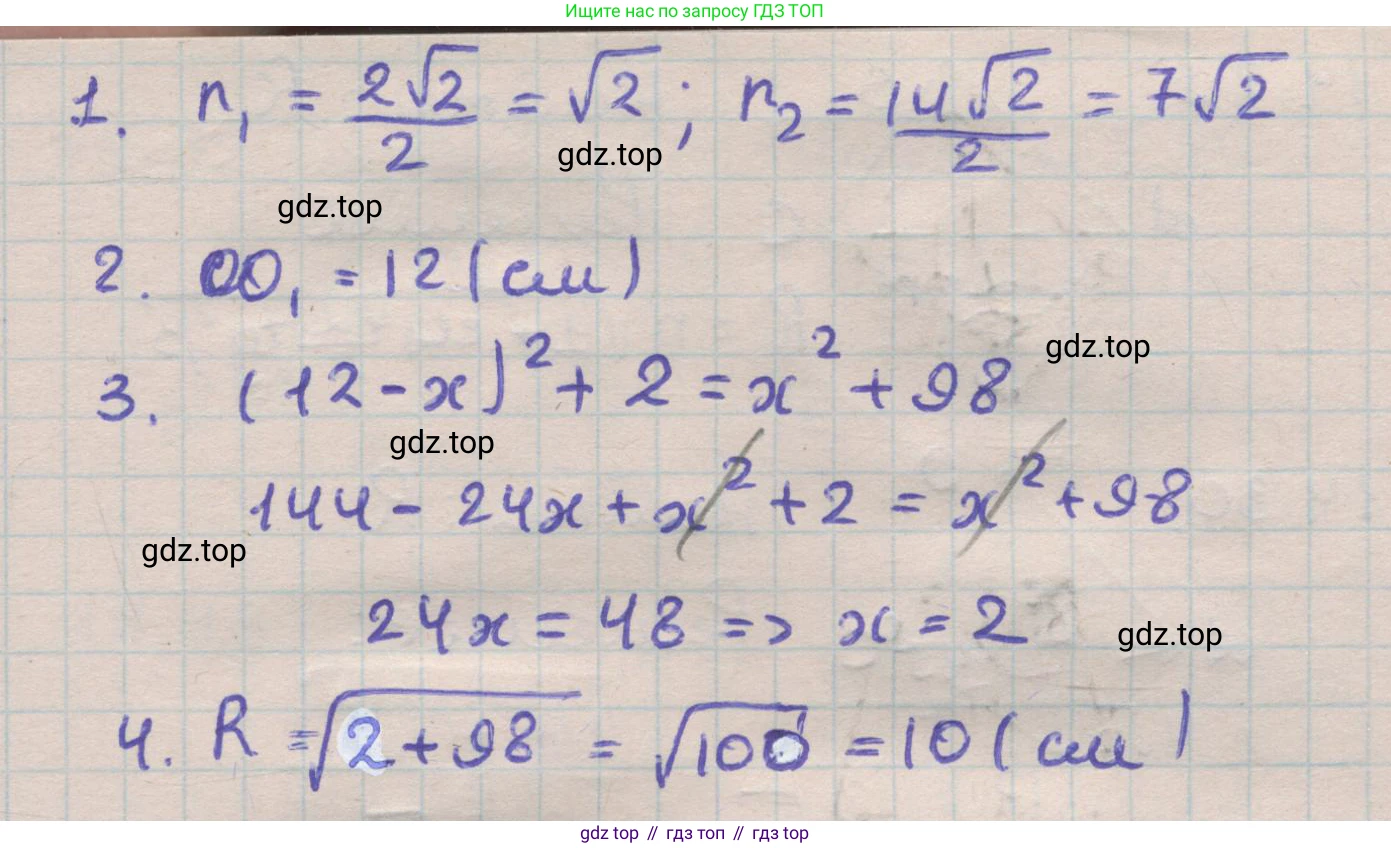 Ищите нас по запросу ГДЗ ТОП
1. r₁ = 2√2/2 = √2; r₂ = 14√2/2 = 7√2
gdz.top
gdz.top
2. OO₁ = 12 (см)
3. (12 - x)² + 2 = x² + 98
gdz.top
gdz.top
144 - 24x + x² + 2 = x² + 98
gdz.top
24x = 48 => x = 2
gdz.top
4. R = √2 + 98 = √100 = 10 (см)
gdz top // гдз топ // гдз top